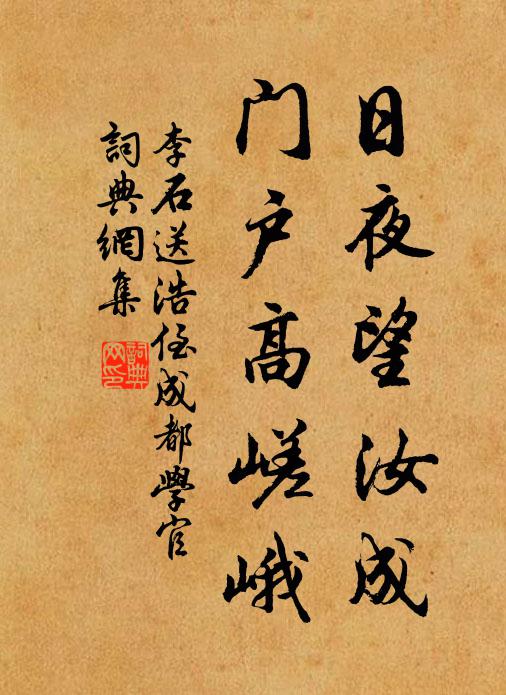 日夜望汝成
门户高嵯峨
李石送浩侄成都学官
詞典網集
詞典网印